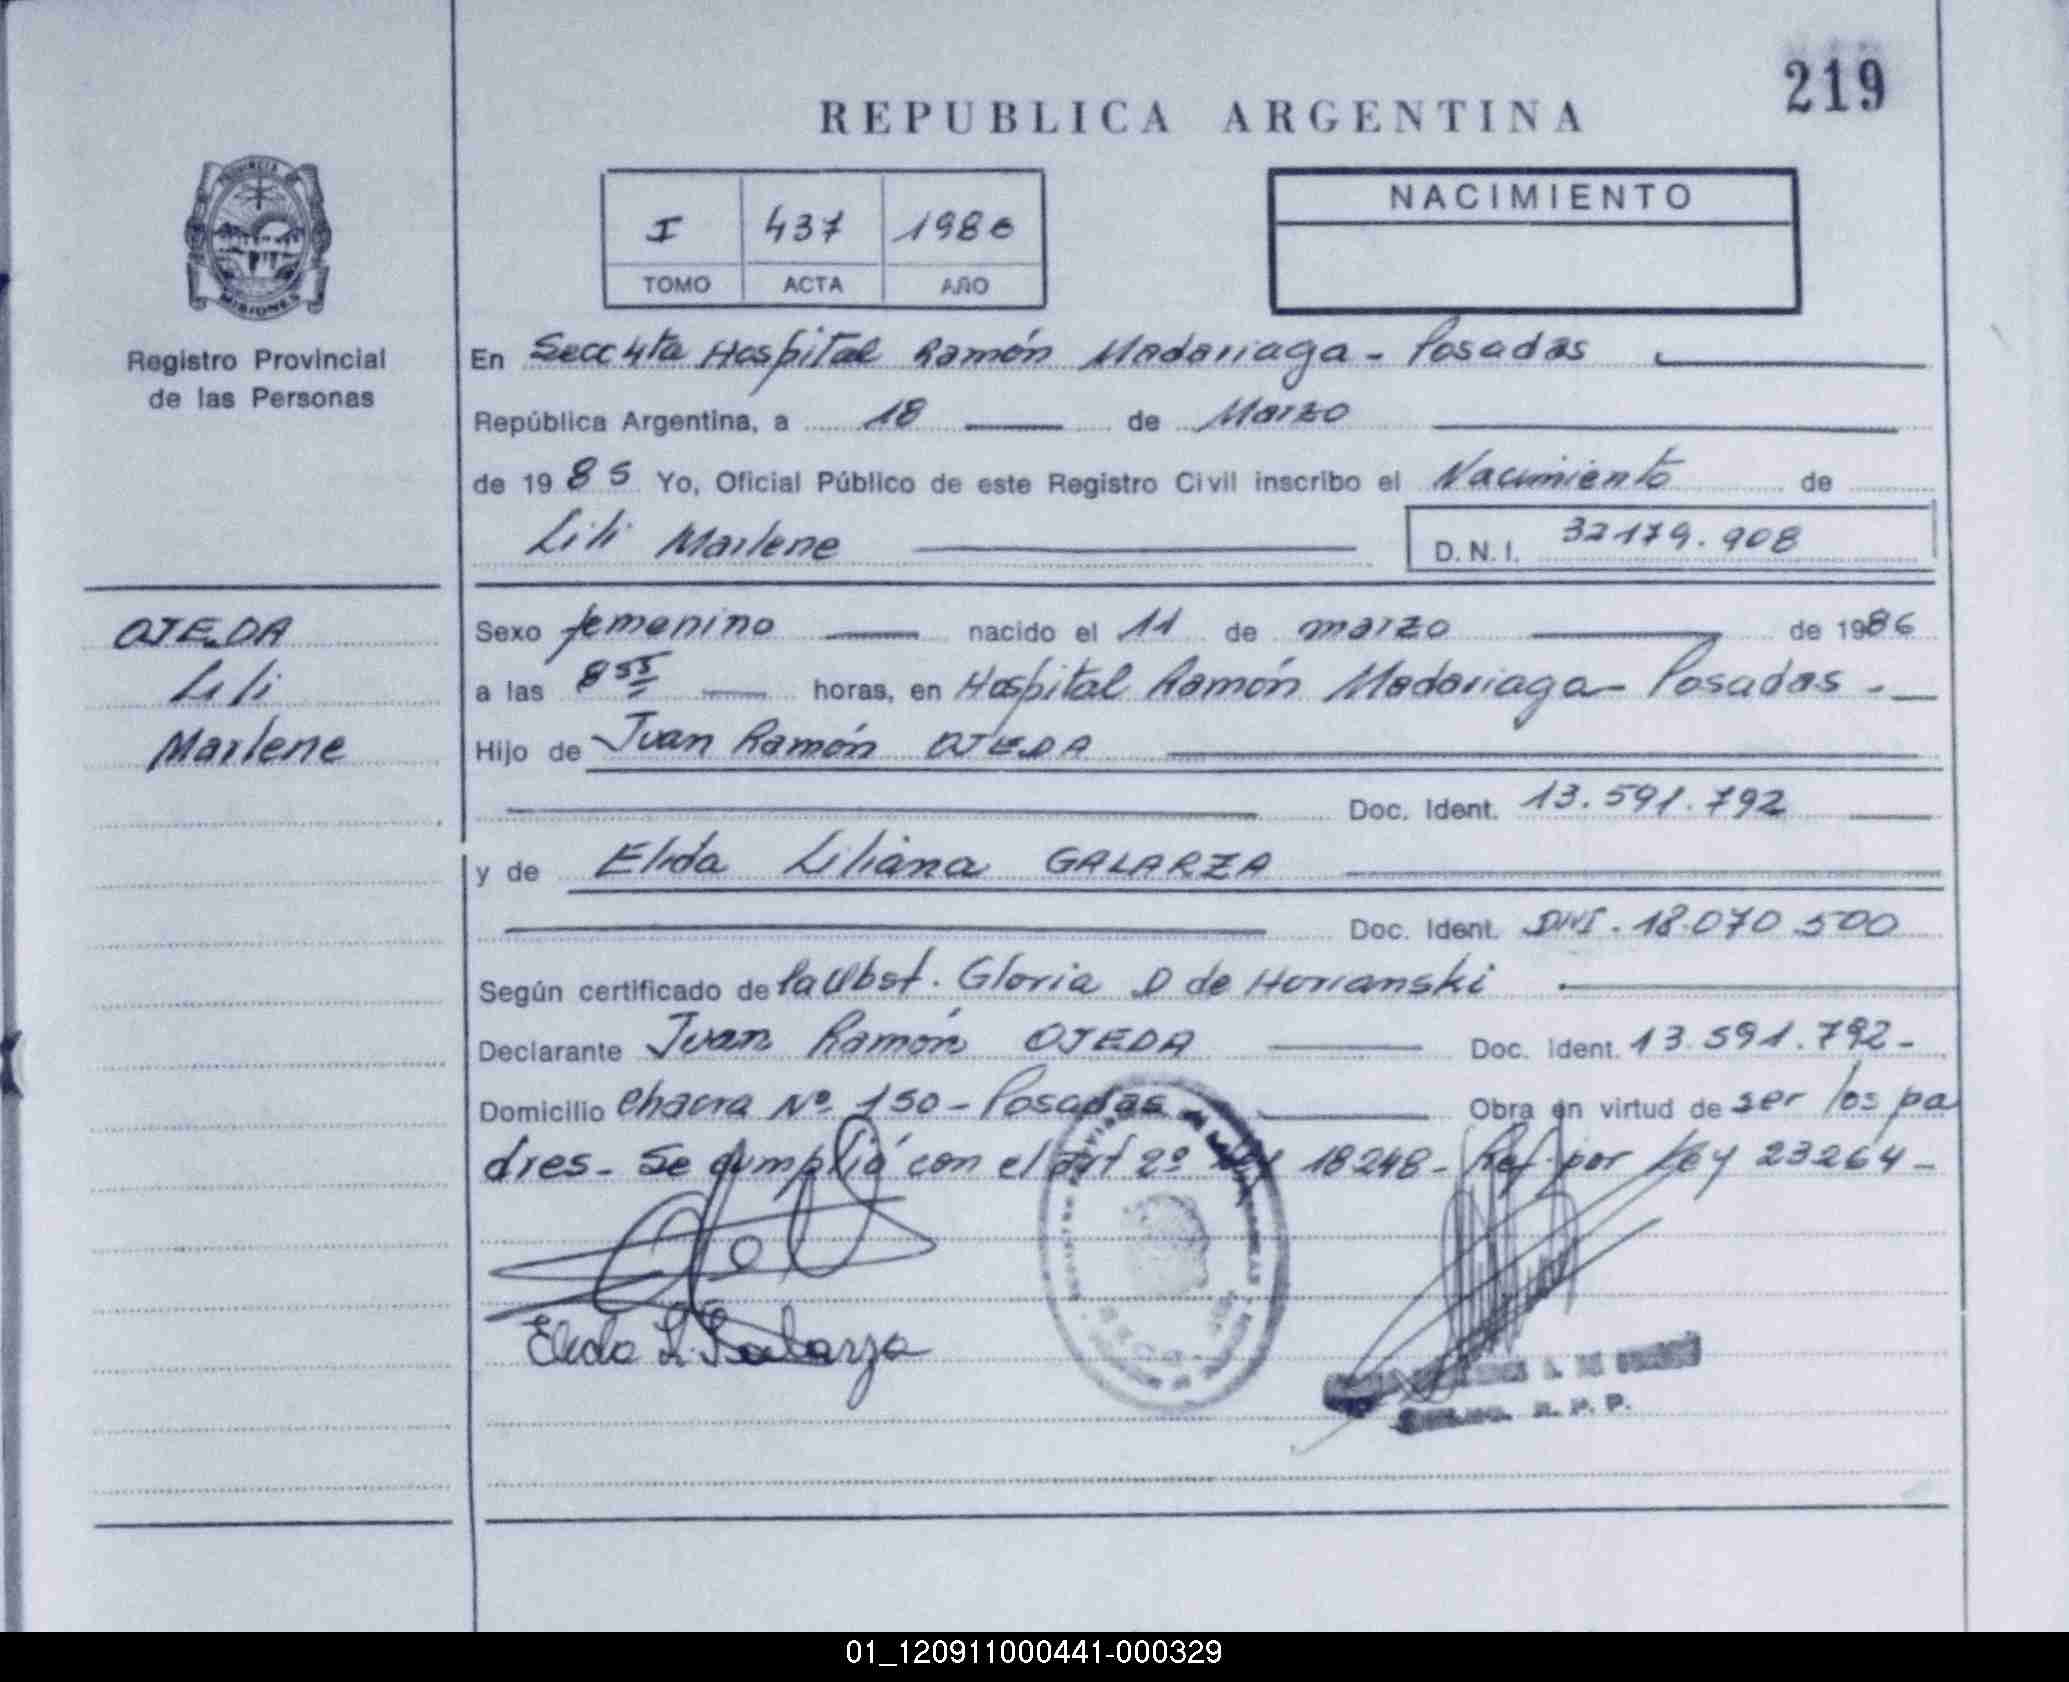 219
REPUBLICA ARGENTINA
NACIMIENTO
I 437 1986
TOMO ACTA AÑO
PROVINCIA DE
MISIONES
Registro Provincial
de las Personas
En Secc 4ta Hospital Ramón Madariaga - Posadas
República Argentina, a 18 de Marzo
de 1985 Yo, Oficial Público de este Registro Civil inscribo el Nacimiento de
Lili Marlene D.N.I. 32179.908
OJEDA
Lili
Marlene
Sexo femenino nacido el 11 de marzo de 1986
a las 8 55 horas, en Hospital Ramón Madariaga - Posadas -
Hijo de Juan Ramón OJEDA
Doc. Ident. 13.591.792
y de Elida Liliana GALARZA
Doc. Ident. DNI. 18.070 500
Según certificado de la Obst. Gloria D de
Declarante Juan Ramón OJEDA Doc. Ident. 13.591.792-
Domicilio Chacra Nº 150 - Posadas Obra en virtud de ser los pa
dres - Se cumplió con el art 2º Ley 18248 - Ref. por Ley 23264 -
Elida L. Galarza
R. P. P.
01_120911000441-000329